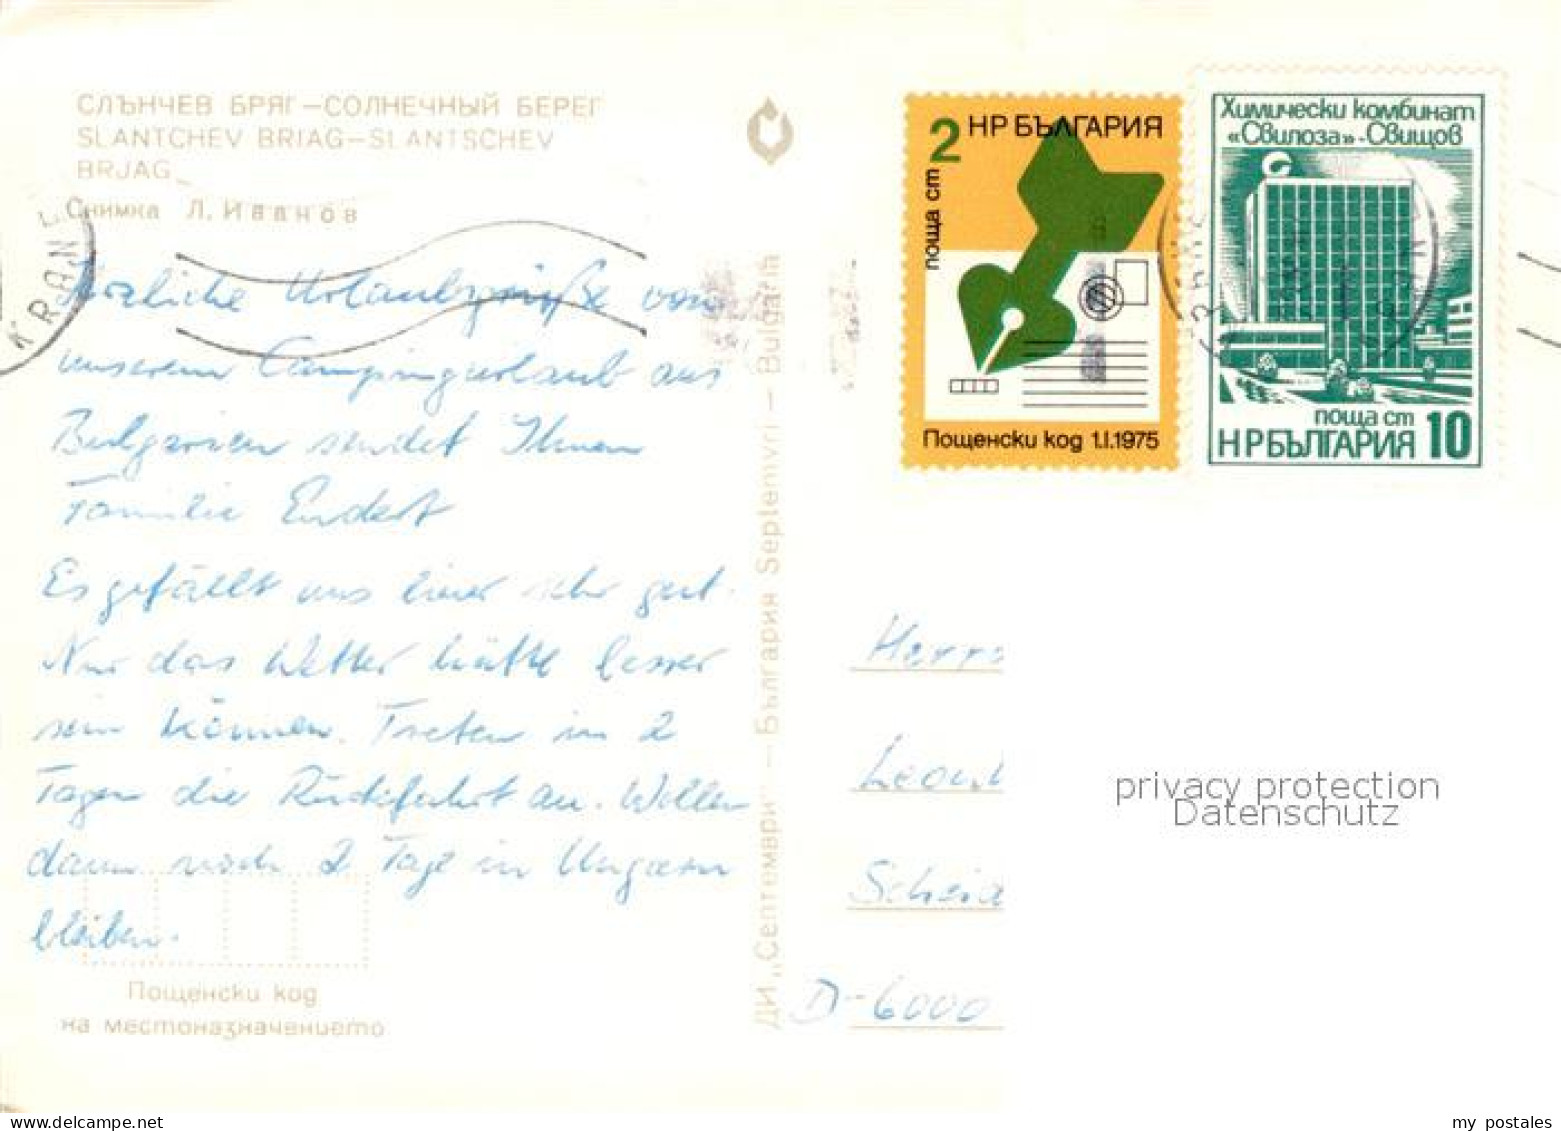 СЛЪНЧЕВ БРЯГ – СОЛНЕЧНЫЙ БЕРЕГ
SLANTCHEV BRIAG – SLANTSCHEV
BRJAG
Снимка Л. Иванов
KRANE
Herzliche Urlaubsgrüße von
unserem Campingurlaub aus
Bulgarien sendet Ihnen
Familie Endert
Es gefällt uns hier sehr gut.
Nur das Wetter hätte besser
sein können. Treten in 2
Tagen die Rückfahrt an. Wollen
dann noch 2 Tage in Ungarn
bleiben.
Пощенски код
на местоназначението
ДИ „Септември" – България Septemvri – Bulgaria
2 НР БЪЛГАРИЯ
поща ст
Пощенски код 1.I.1975
Химически комбинат
«Свилоза»-Свищов
поща ст
НР БЪЛГАРИЯ 10
Herrn
Scheid
D-6000
privacy protection
Datenschutz
my postales